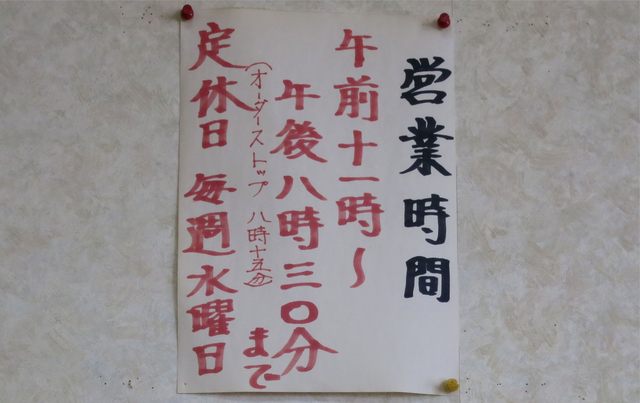 営業時間
午前十一時〜
午後八時三〇分
まで
(オーダーストップ 八時十五分)
定休日 毎週水曜日